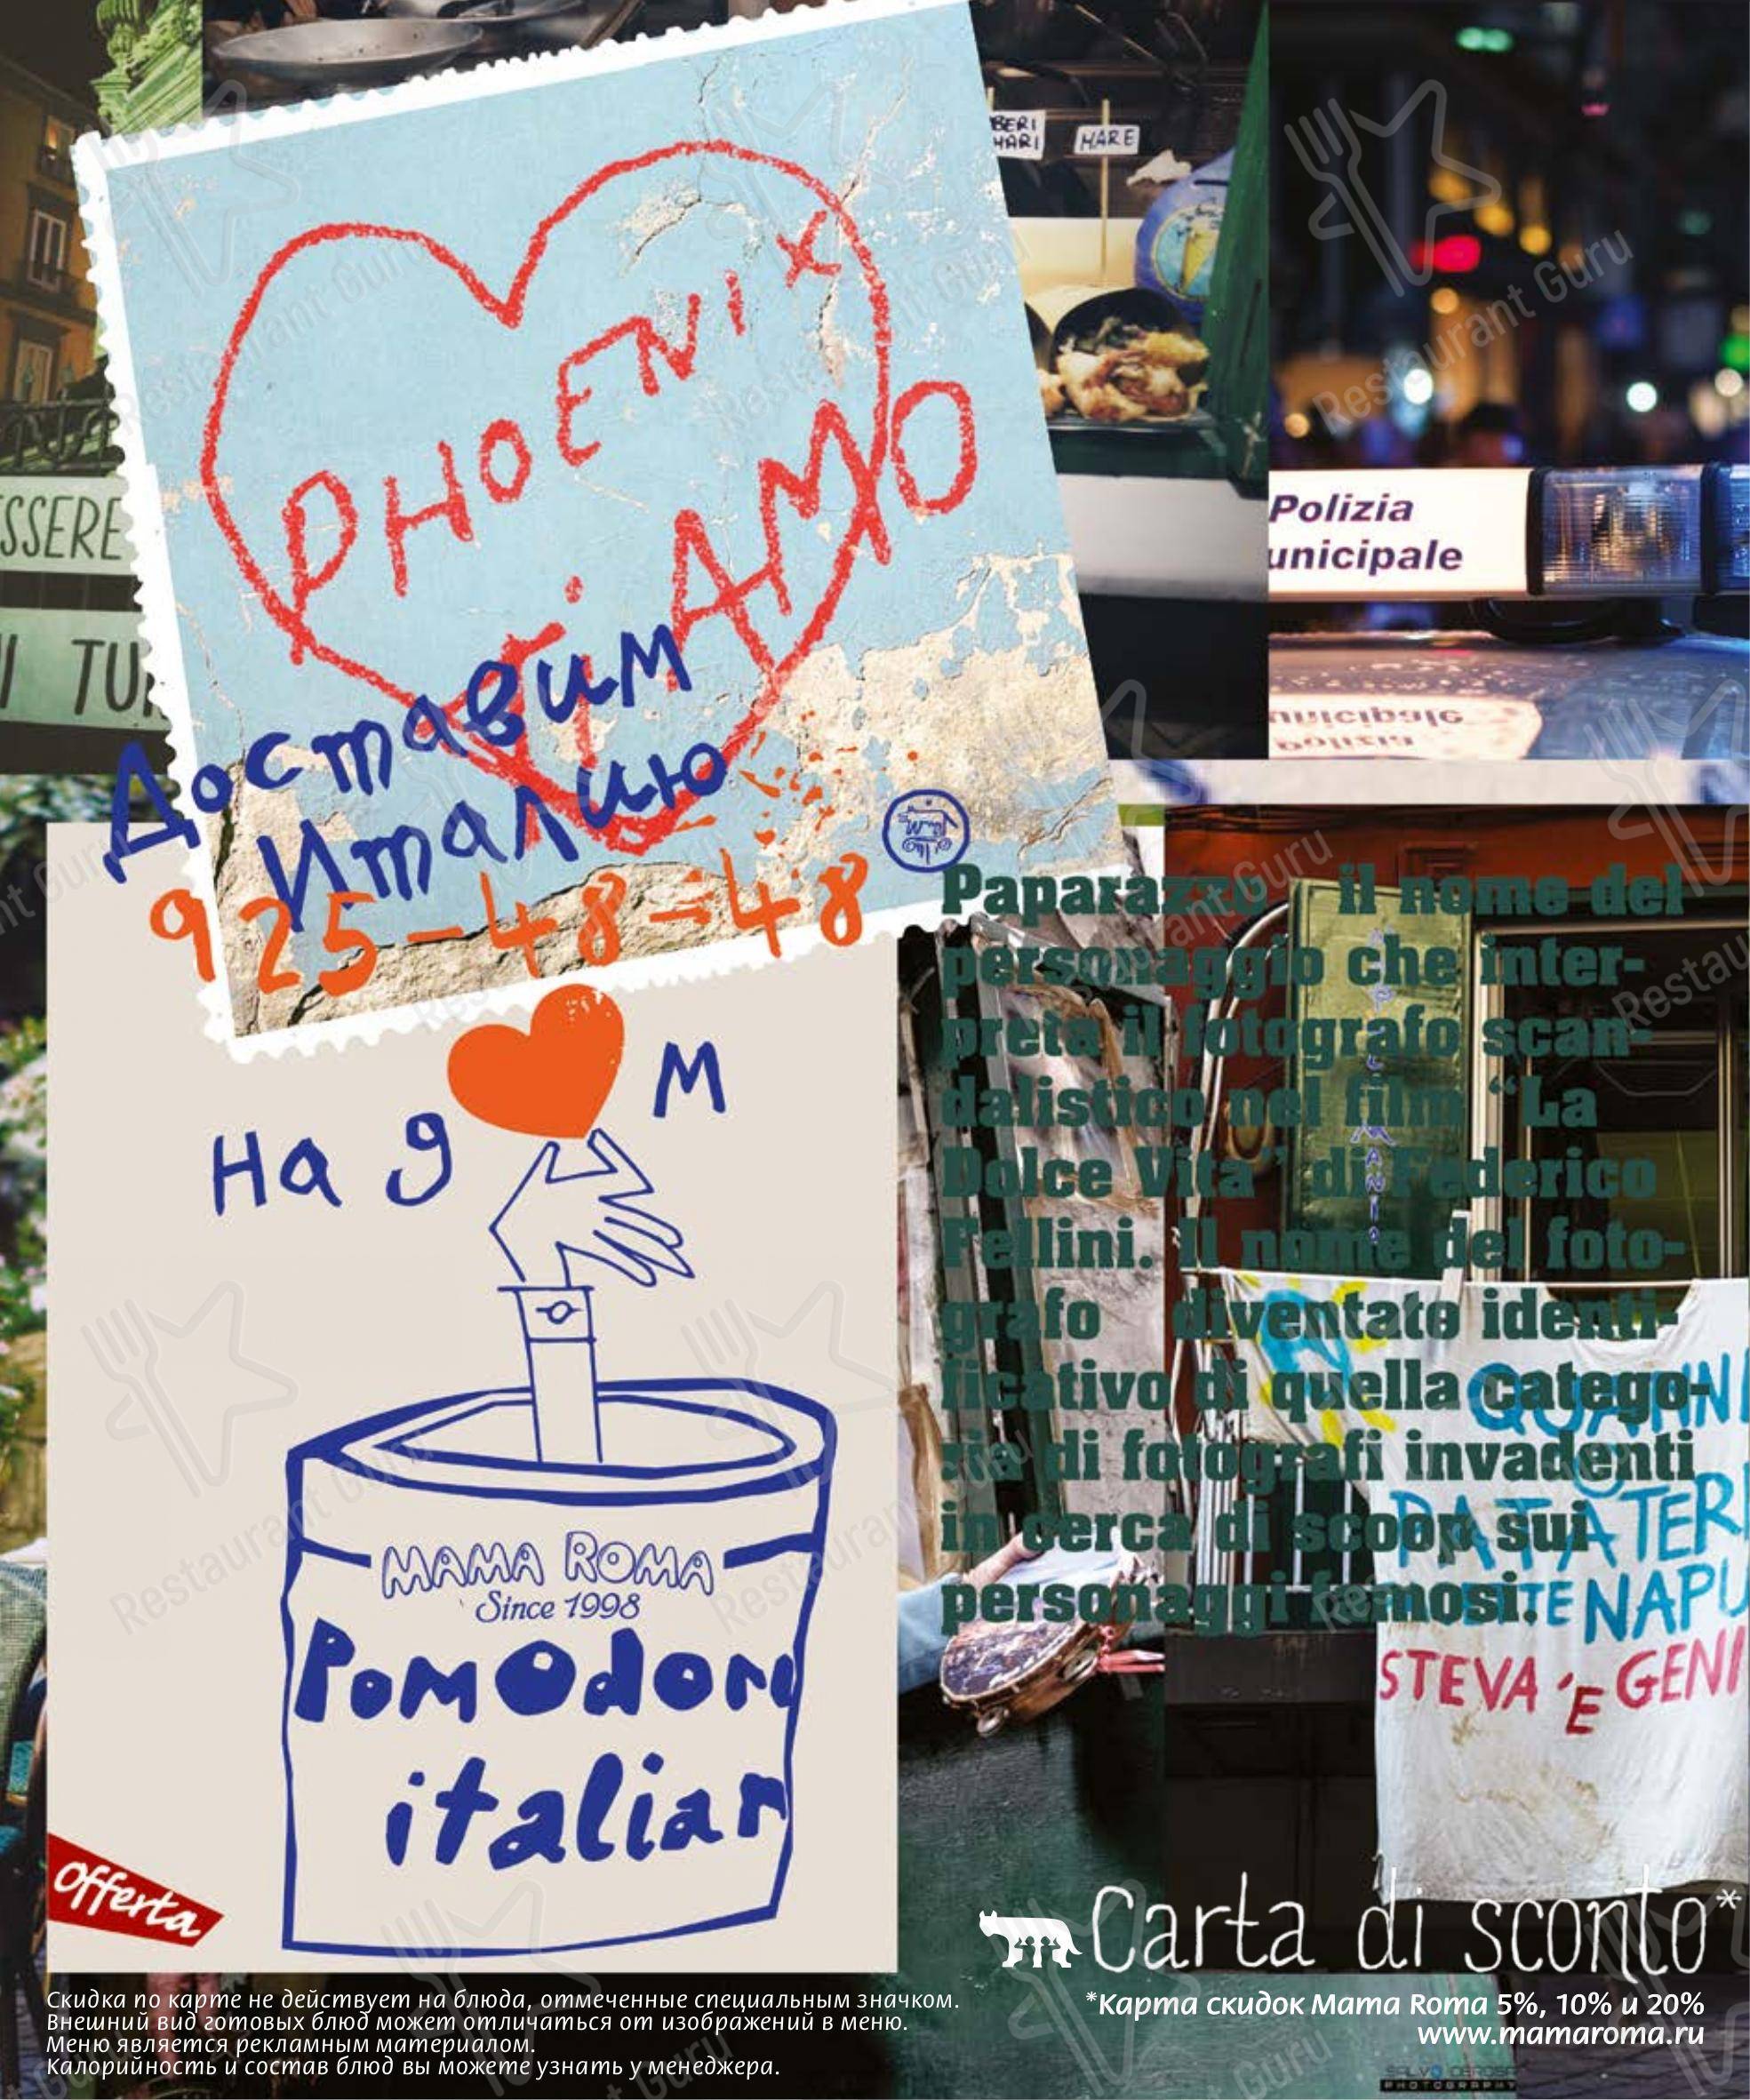 BERI
MARI
MARE
PHOENIX
Ti AMO
SSERE
I TU
Polizia
unicipale
Доставим
Италию
925-48-48
На д м
MAMA ROMA
Since 1998
Pomodori
italian
Offerta
Paparazzo il nome del
personaggio che inter-
preta il fotografo scan-
dalistico nel film “La
Dolce Vita” di Federico
Fellini. Il nome del foto-
grafo diventato identi-
ficativo di quella catego-
ria di fotografi invadenti
in cerca di scoop sui
personaggi famosi.
NAPU
STEVA 'E GENI
Carta di sconto*
*Карта скидок Mama Roma 5%, 10% и 20%
www.mamaroma.ru
Скидка по карте не действует на блюда, отмеченные специальным значком.
Внешний вид готовых блюд может отличаться от изображений в меню.
Меню является рекламным материалом.
Калорийность и состав блюд вы можете узнать у менеджера.
Restaurant Guru